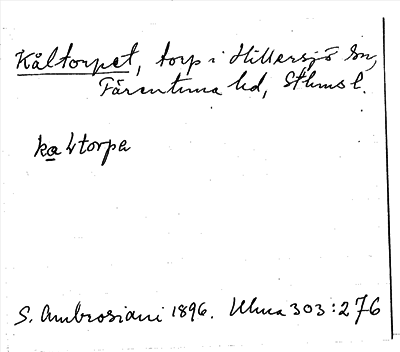 Kåltorpet, torp i Hillersjö sn,
Färentuna hd, Sthms l.
kaltorpa
S. Ambrosiani 1896. Ulma 303:276